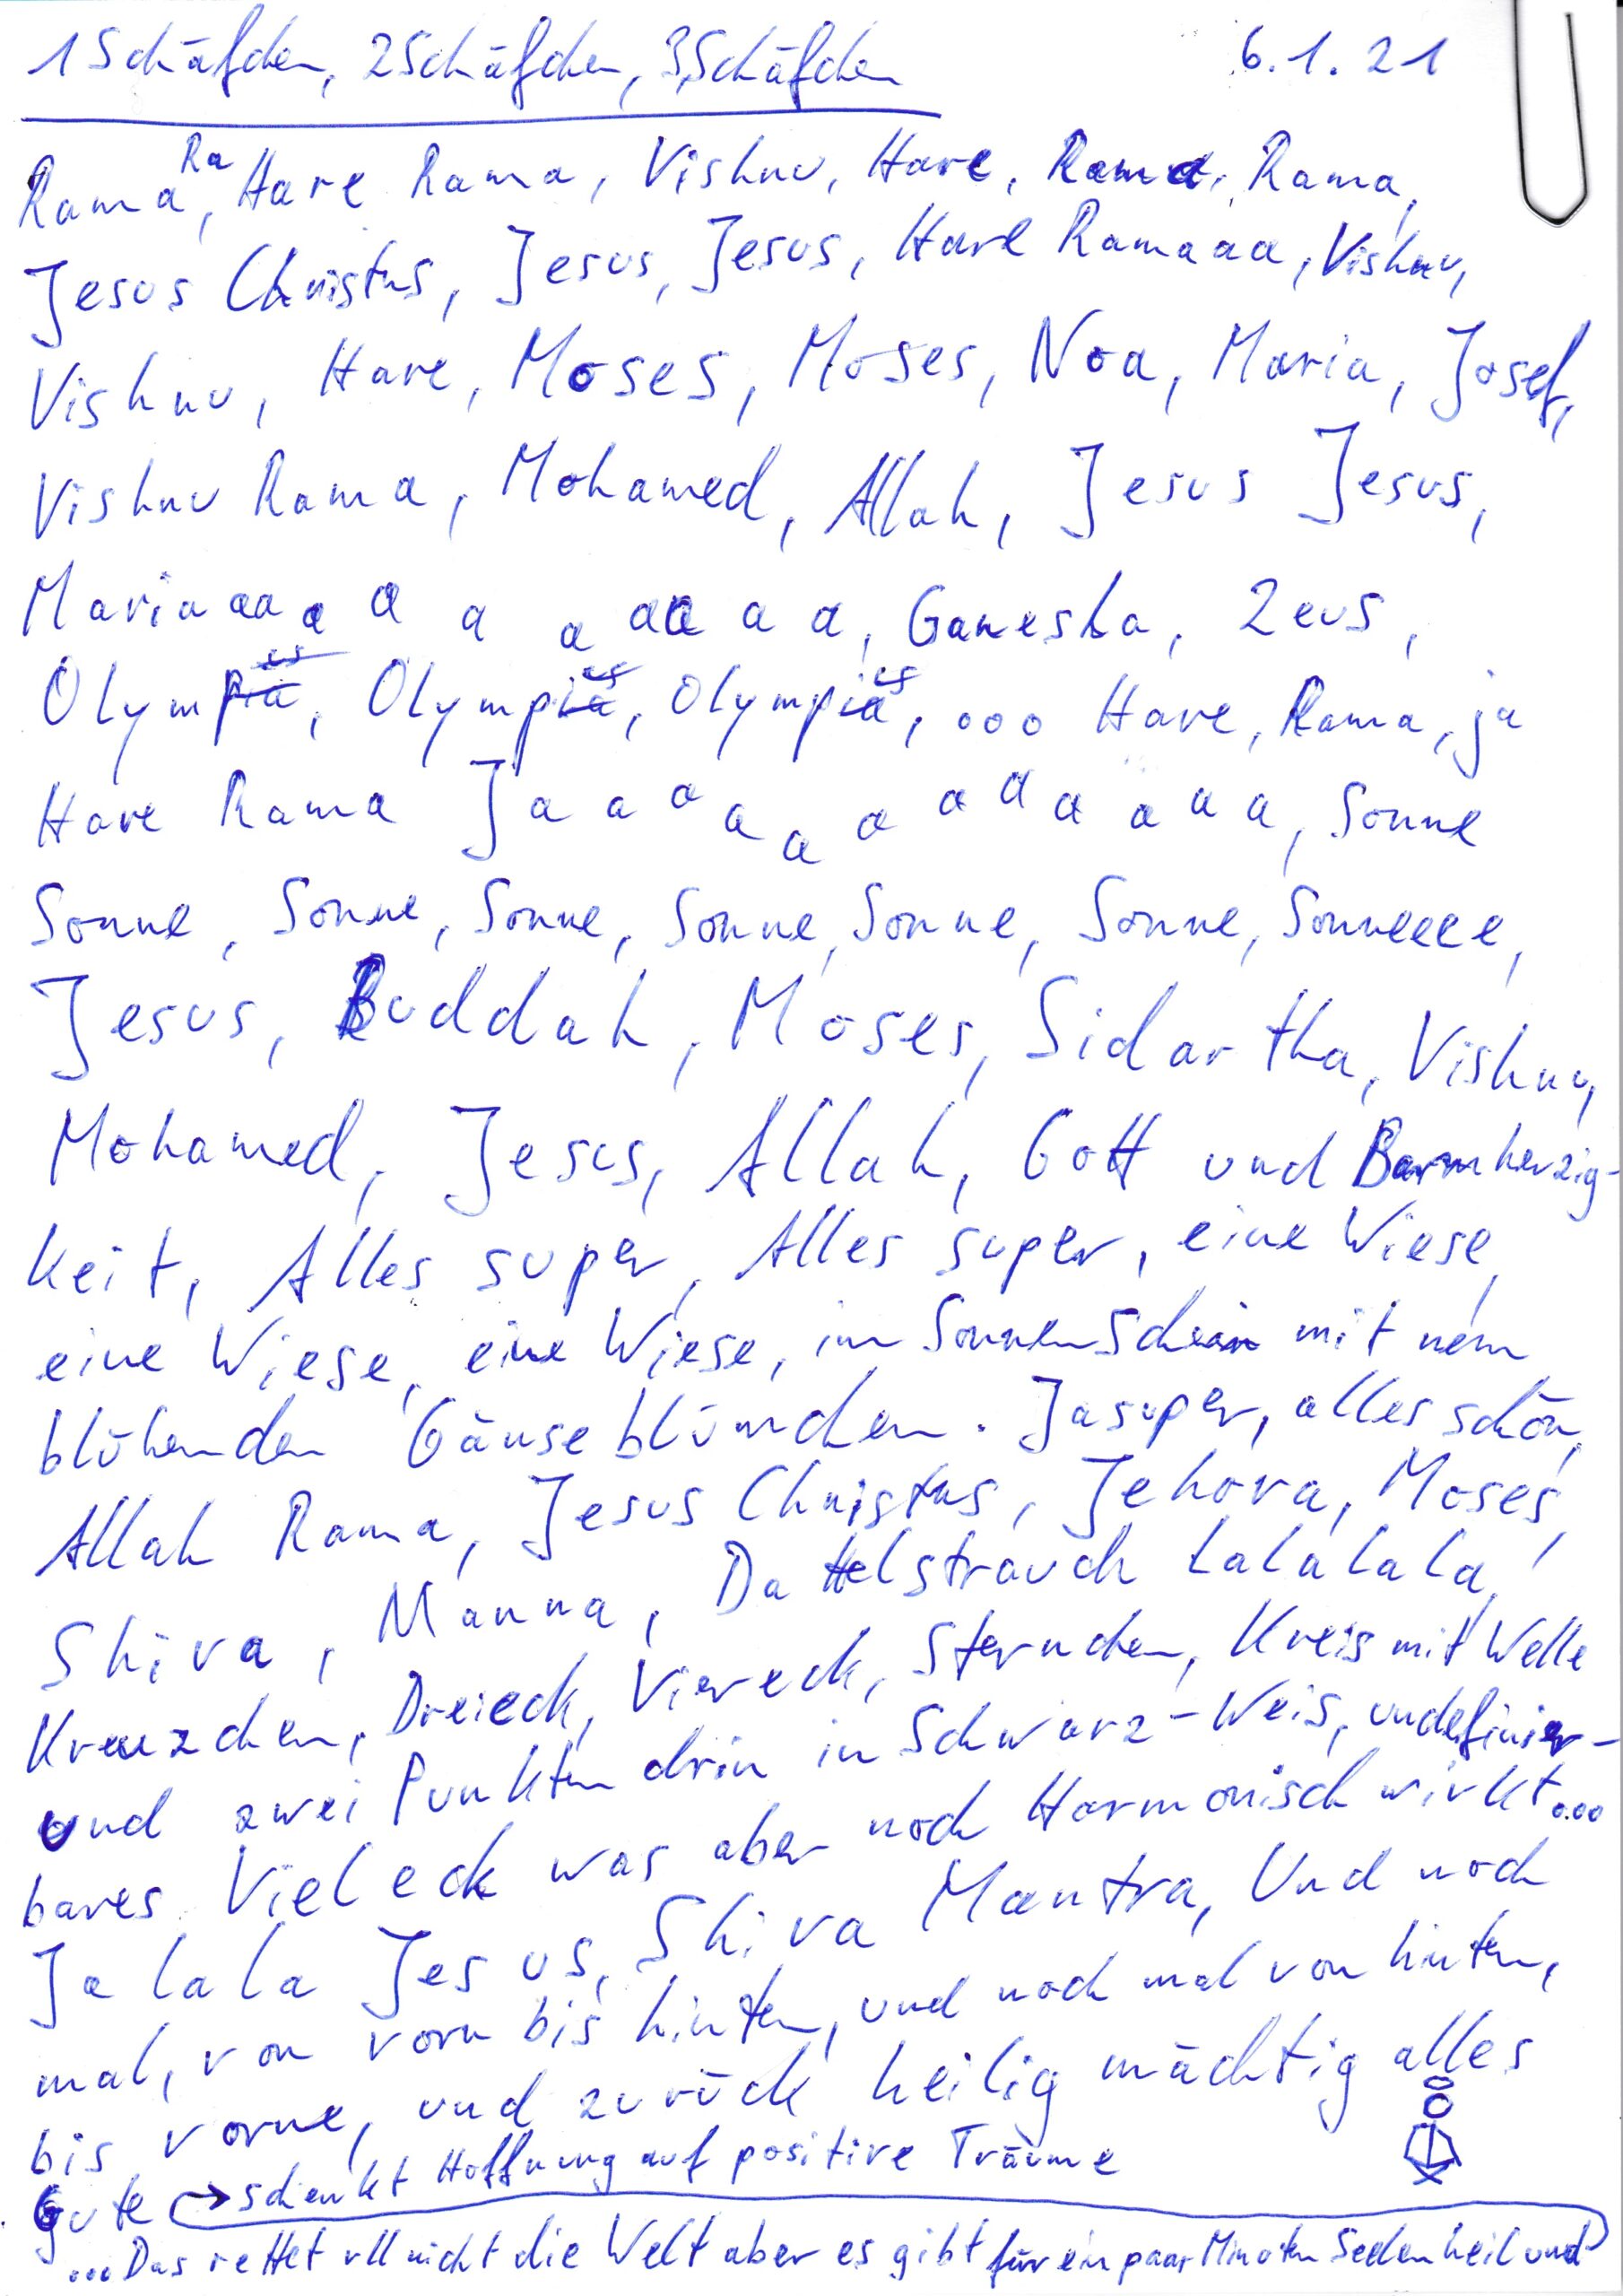 1 Schäfchen, 2 Schäfchen, 3 Schäfchen 6.1.21
Rama Ra, Hare Rama, Vishnu, Hare, Rama, Rama,
Jesus Christus, Jesus, Jesus, Hare Ramaaa, Vishnu,
Vishnu, Hare, Moses, Moses, Noa, Maria, Josef,
Vishnu Rama, Mohamed, Allah, Jesus Jesus,
Mariaaaa a a a aa a a, Ganesha, Zeus,
Olympia es, Olympia es, Olympia es, ... Hare, Rama, ja
Hare Rama Ja a a a a a a a a a a a, Sonne
Sonne, Sonne, Sonne, Sonne, Sonne, Sonne, Sonneeee,
Jesus, Buddah, Moses, Sidartha, Vishnu,
Mohamed, Jesus, Allah, Gott und Barmherzig-
keit, Alles super, Alles super, eine Wiese,
eine Wiese, eine Wiese, im Sonnenschein mit nem
blühenden Gänseblümchen. Ja super, alles schön,
Allah Rama, Jesus Christus, Jehova, Moses,
Shiva, Manna, Dattelstrauch Lalalala,
Kreuzchen, Dreieck, Viereck, Sternchen, Kreis mit Welle
und zwei Punkten drin in Schwarz-Weis, undefinier-
bares Vieleck was aber noch Harmonisch wirkt...
Ja lala Jesus, Shiva Mantra, Und noch
mal, von vorn bis hinten, und noch mal von hinten,
bis vorne, und zurück heilig mächtig alles
Gute → schenkt Hoffnung auf positive Träume
... Das rettet vll nicht die Welt aber es gibt für ein paar Minuten Seelenheil und